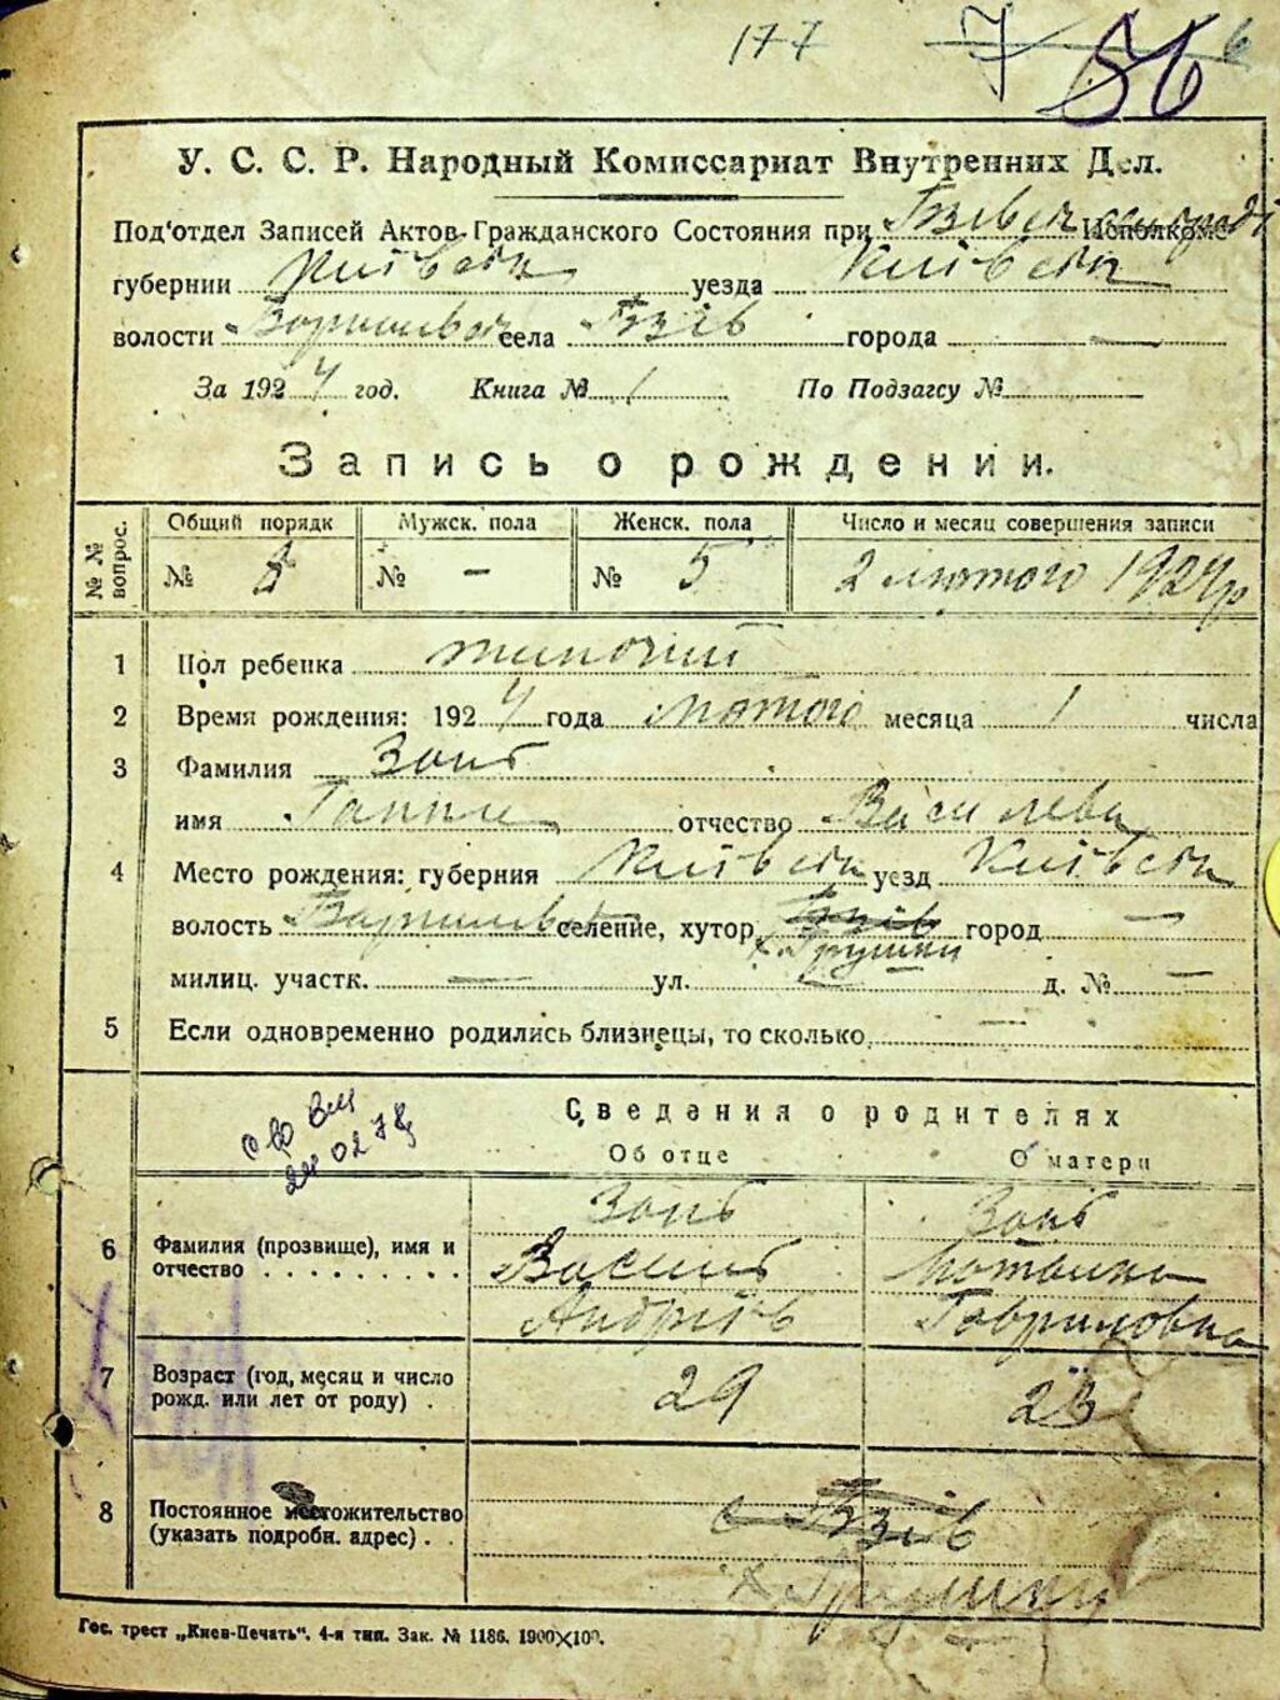 177 7 56 6
У. С. С. Р. Народный Комиссариат Внутренних Дел.
Под'отдел Записей Актов Гражданского Состояния при Бзівськ. сільраді Исполкоме
губернии Київськ уезда Київськ
волости Баришевськ села Бзів города —
За 1924 год. Книга № 1 По Подзагсу №
Запись о рождении.
№ № вопрос. Общий порядк Мужск. пола Женск. пола Число и месяц совершения записи
№ 8 № — № 5 2 лютого 1924 р
1 Пол ребенка жіночий
2 Время рождения: 1924 года лютого месяца 1 числа
3 Фамилия Зоць
имя Ганна отчество Василева
4 Место рождения: губерния Київськ уезд Київськ
волость Баришевськ селение, хутор Бзів город —
х. Грушки
милиц. участк. — ул. — д. № —
5 Если одновременно родились близнецы, то сколько —
Сведения о родителях
Об отце О матери
6 Фамилия (прозвище), имя и отчество
Зоць Зоць
Василь Мотрина
Андріїв Гавриловна
7 Возраст (год, месяц и число рожд. или лет от роду) . 29 23
8 Постоянное местожительство (указать подробн. адрес) . .
с Бзів
х. Грушки
Гос. трест „Киев-Печать“. 4-я тип. Зак. № 1186. 1900×100.